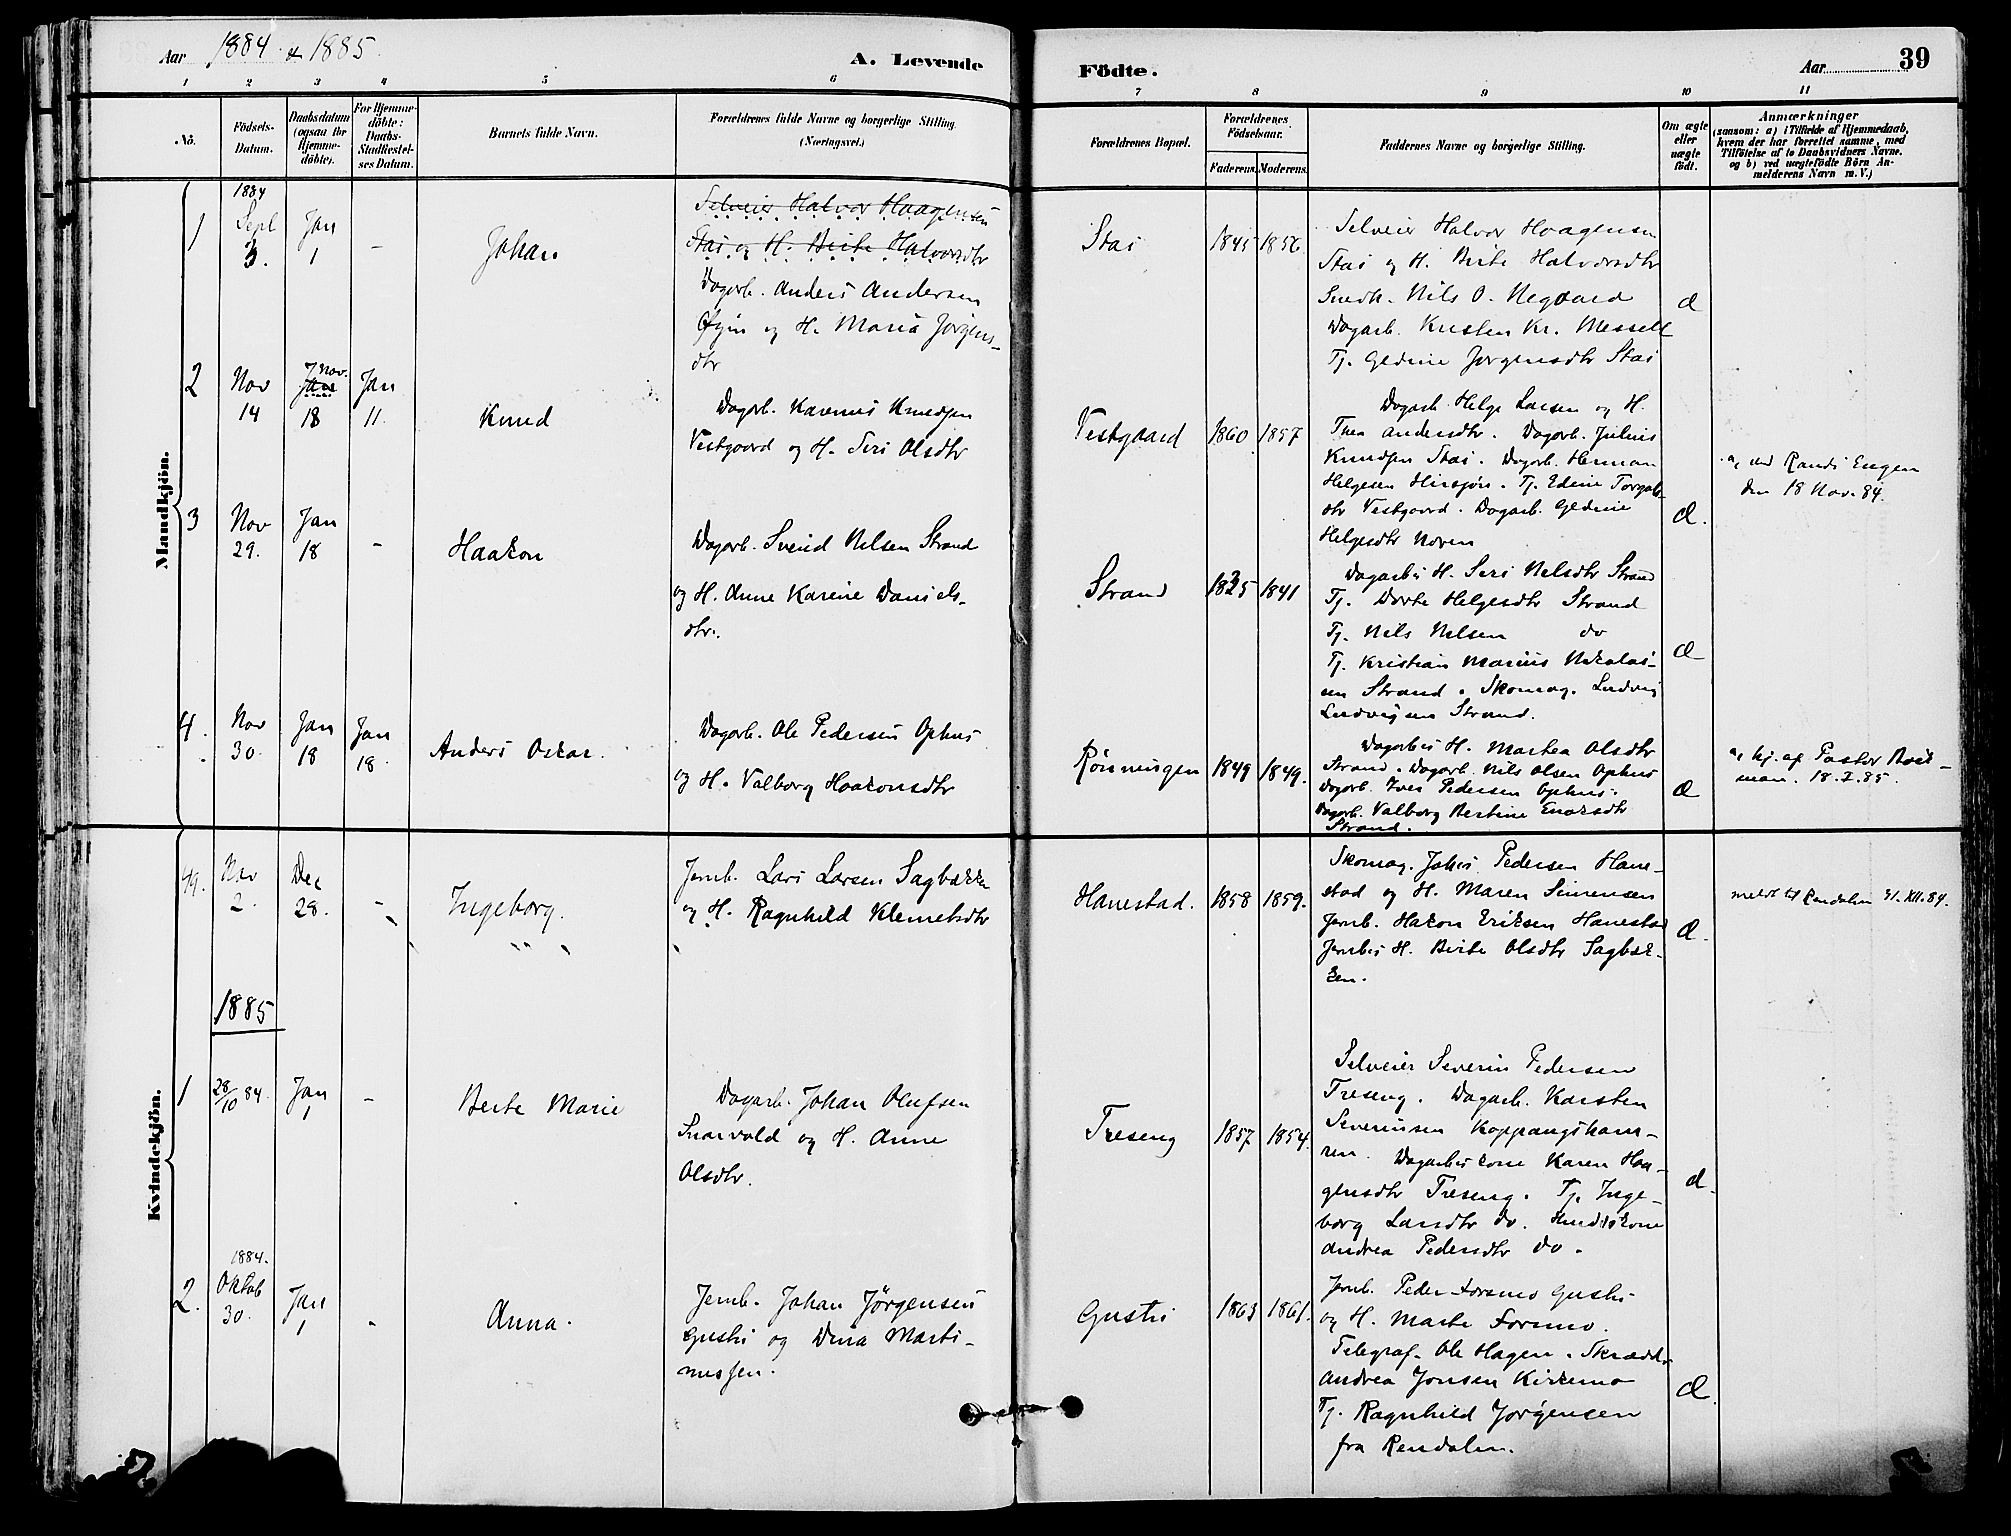 Aar 1884 & 1885.
A. Levende
Födte.
Aar
39
1 2 3 4 5 6 7 8 9 10 11
No.
Födsels-Datum.
Daabsdatum (ogsaa for Hjemme-döbte).
For Hjemme-döbte: Daabs-Stadfæstel-ses Datum.
Barnets fulde Navn.
Forældrenes fulde Navne og borgerlige Stilling. (Næringsvei.)
Forældrenes Bopæl.
Forældrenes Födselsaar.
Faderens. Moderens.
Faddernes Navne og borgerlige Stilling.
Om ægte eller uægte födt.
Anmærkninger
(saasom: a) i Tilfælde af Hjemmedaab,
hvem der har forrettet samme, med
Tilföielse af to Daabsvidners Navne.
og b) ved uægtefödte Börn An-
melderens Navn m. V.)
Mandkjön.
1
1884 Sept 3.
Jan 1
-
Johan
Selveier Halvor Haagensen
Stai og H. Berte Halvorsdtr
Dagarb. Anders Andersen
Øyen og H. Maria Jørgens-
dtr
Stai
1845 1856
Selveier Halvor Haagensen
Stai og H. Berte Halvorsdtr
Snedk. Nils O. Negaard
Dagarb. Kristen Kr. Messelt
Tj. Gedine Jørgensdtr Stai
2
Nov 14
Jan Nov. 18
Jan 11.
Knud
Dagarb. Karenus Knudsen
Vestgaard og H. Siri Olsdtr
Vestgaard
1860 1857
Dagarb. Helge Larsen og H.
Thea Andersdtr. Dagarb. Julius
Knudsen Stai. Dagarb. Herman
Helgesen
Tj. Edine
dtr Vestgaard. Dagarb. Gedine
Helgesdtr Moren
a, ved Randi Engen
den 18 Nov. 84.
3
Nov 29.
Jan 18
-
Haakon
Dagarb. Svend Nilsen Strand
og H. Anne Karine Daniels-
dtr.
Strand
1835 1841
Dagarbs H. Siri Nilsdtr Strand
Tj. Dorte Helgesdtr Strand
Tj. Nils Nilsen do
Tj. Kristian Marius Nikolai-
sen Strand. Skomag. Ludvig
Ludvigsen Strand.
4.
Nov 30.
Jan 18
Jan 18.
Anders Oskar.
Dagarb. Ole Pedersen Ophus
og H. Valborg Haakonsdtr
Rønningen
1849 1849.
Dagarbs H. Martea Olsdtr
Strand. Dagarb. Nils Olsen Ophus
Dagarb. Iver Pedersen Ophus.
Dagarb. Valborg Bertine Enoksdtr
Strand.
a, hj. af Pastor
18.I.85.
Kvindekjön.
49.
Nov 2.
Dec 28.
-
Ingeborg.
Jernb. Lars Larsen Sagbakken
og H. Ragnhild Klemetsdtr
Hanestad.
1858 1859.
Skomag. Johs Pedersen Hane-
stad og H. Maren Simensen
Jernb. Hakon Eriksen Hanestad
Jernbs H. Berte Olsdtr Sagbak-
ken.
meldt til Rendalen 31.XII.84.
1885
1
28/10 84.
Jan 1
-
Berte Marie
Dagarb. Johan Olufsen
Snarvold og H. Anne
Olsdtr.
Treseng
1857 1854.
Selveier Severin Pedersen
Treseng. Dagarb. Karsten
Severinsen Koppangskam-
ren. Dagarbskone Karen Haa-
gensdtr Treseng. Tj. Inge-
borg Larsdtr do.
Andrea Pedersdtr do.
2.
1884. Oktob 30.
Jan 1
-
Anna.
Jernb. Johan Jørgensen
Gusti og Dina Marti-
nussen.
Gusti
1863 1861.
Jernb. Peder Formo Gusti
og H. Marte Formo.
Telegraf. Ole Hagen. Skrædder
Andrea Jonsen Kirkemo
Tj. Ragnhild Jørgensen
fra Rendalen.